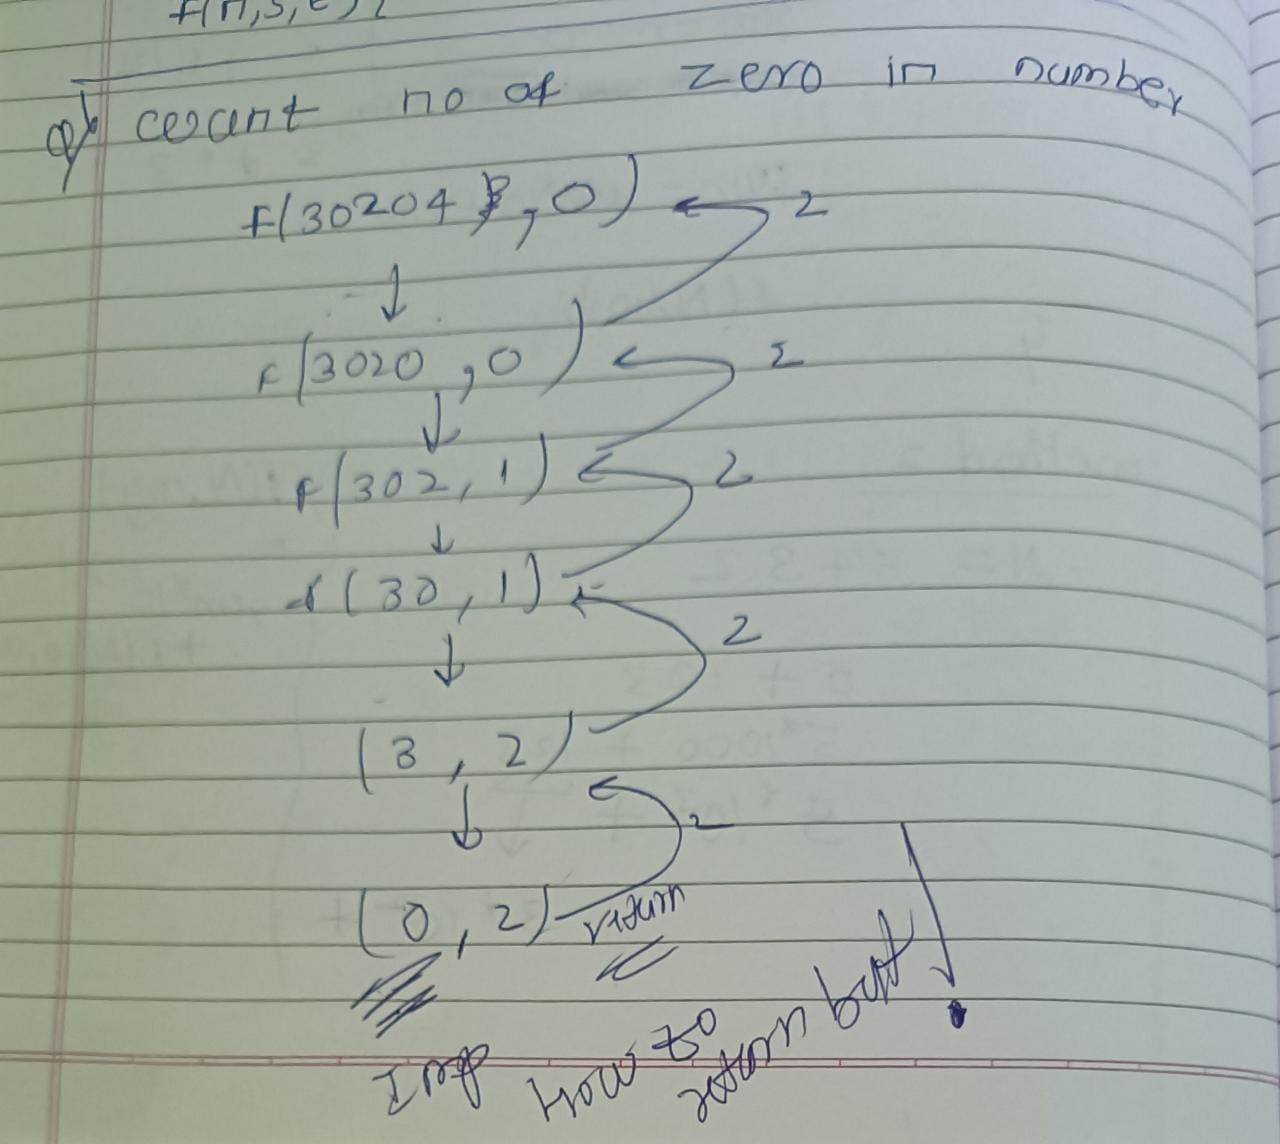 f(n,s,c)
Q) count no of zero in number
f(30204, 0) 2
f(3020, 0) 2
f(302, 1) 2
f(30, 1)
2
(3, 2)
2
(0, 2) return
Imp How to
return but